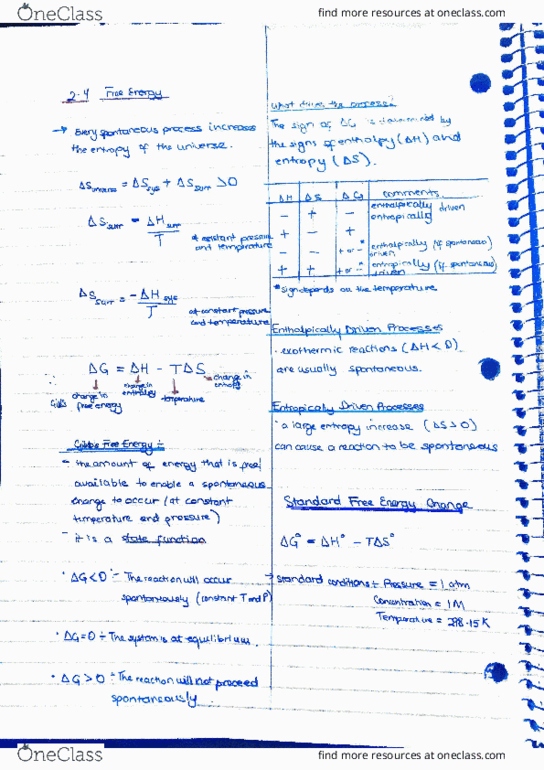 OneClass
find more resources at oneclass.com
2.4 Free Energy
→ Every spontaneous process increases
the entropy of the universe.
ΔS universe = ΔS sys + ΔS surr > 0
ΔS surr = ΔH surr / T
at constant pressure
and temperature
ΔS surr = -ΔH sys / T
at constant pressure
and temperature
ΔG = ΔH - TΔS
change in
entropy
change in
enthalpy
Gibbs
change in
free energy
temperature
Gibbs Free Energy :-
- the amount of energy that is free/
available to enable a spontaneous
change to occur (at constant
temperature and pressure)
- it is a state function
· ΔG < 0 :- The reaction will occur
spontaneously (constant T and P)
· ΔG = 0 :- The system is at equilibrium.
· ΔG > 0 :- The reaction will not proceed
spontaneously.
What drives the process?
The sign of ΔG is determined by
the signs of enthalpy (ΔH) and
entropy (ΔS).
ΔH ΔS ΔG comments
- + - enthalpically driven
entropically
+ - +
- - + or -* enthalpically (if spontaneous)
driven
+ + + or -* entropically (if spontaneous)
driven
*sign depends on the temperature
Enthalpically Driven Processes
· exothermic reactions (ΔH < 0)
are usually spontaneous.
Entropically Driven Processes
· a large entropy increase (ΔS > 0)
can cause a reaction to be spontaneous
Standard Free Energy Change
ΔG° = ΔH° - TΔS°
→ standard conditions :- Pressure = 1 atm
Concentration = 1M
Temperature = 298.15 K
OneClass
find more resources at oneclass.com